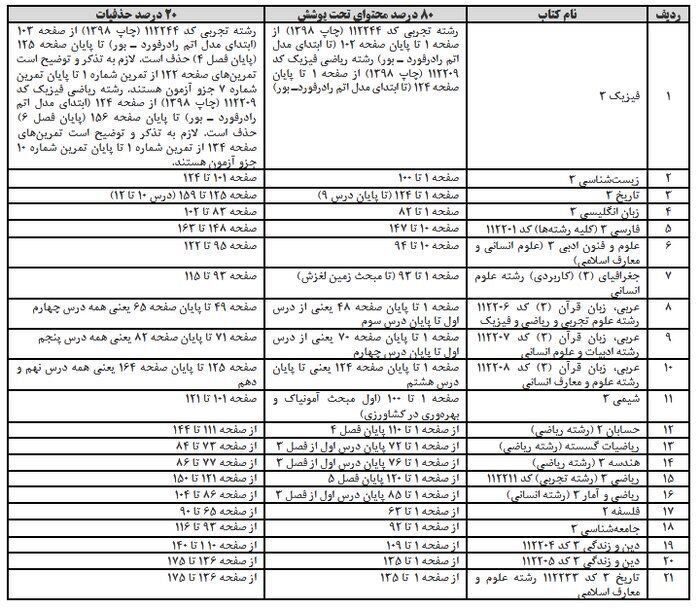 ردیف	نام کتاب	۸۰ درصد محتوای تحت پوشش	۲۰ درصد حذفیات
۱	فیزیک ۳	رشته تجربی کد ۱۱۲۲۴۴ (چاپ ۱۳۹۸) از
صفحه ۱ تا پایان صفحه ۱۰۲ (تا ابتدای مدل
اتم رادرفورد ـ بور) رشته ریاضی فیزیک کد
۱۱۲۲۰۹ (چاپ ۱۳۹۸) از صفحه ۱ تا پایان
صفحه ۱۲۴ (تا ابتدای مدل اتم رادرفورد-بور)
رشته تجربی کد ۱۱۲۲۴۴ (چاپ ۱۳۹۸) از صفحه ۱۰۳
(ابتدای مدل اتم رادرفورد ـ بور) تا پایان صفحه ۱۲۵
(پایان فصل ۴) حذف است. لازم به تذکر و توضیح است
تمرین‌های صفحه ۱۲۲ از تمرین شماره ۱ تا پایان تمرین
شماره ۷ جزو آزمون هستند. رشته ریاضی فیزیک کد
۱۱۲۲۰۹ (چاپ ۱۳۹۸) از صفحه ۱۲۴ (ابتدای مدل اتم
رادرفورد - بور) تا پایان صفحه ۱۵۶ (پایان فصل ۶)
حذف است. لازم به تذکر و توضیح است تمرین‌های
صفحه ۱۳۴ از تمرین شماره ۱ تا پایان تمرین شماره ۱۰
جزو آزمون هستند.
۲	زیست‌شناسی ۳	صفحه ۱ تا ۱۰۰	صفحه ۱۰۱ تا ۱۲۴
۳	تاریخ ۳	صفحه ۱ تا ۱۲۴ (تا پایان درس ۹)	صفحه ۱۲۵ تا ۱۵۹ (درس ۱۰ تا ۱۲)
۴	زبان انگلیسی ۳	صفحه ۱ تا ۸۲	صفحه ۸۳ تا ۱۰۲
۵	فارسی ۳ (کلیه رشته‌ها) کد ۱۱۲۲۰۱	صفحه ۱۰ تا ۱۴۷	صفحه ۱۴۸ تا ۱۶۳
۶	علوم و فنون ادبی ۳ (علوم انسانی و
معارف اسلامی)	صفحه ۱۰ تا ۹۴	صفحه ۹۵ تا ۱۲۲
۷	جغرافیای (۳) (کاربردی) رشته علوم
انسانی	صفحه ۱ تا ۹۳ (تا مبحث زمین لغزش)	صفحه ۹۳ تا ۱۱۵
۸	عربی، زبان قرآن (۳) کد ۱۱۲۲۰۶
رشته علوم تجربی و ریاضی و فیزیک	صفحه ۱ تا پایان صفحه ۴۸ یعنی از درس
اول تا پایان درس سوم	صفحه ۴۹ تا پایان صفحه ۶۵ یعنی همه درس چهارم
۹	عربی، زبان قرآن (۳) کد ۱۱۲۲۰۷
رشته ادبیات و علوم انسانی	صفحه ۱ تا پایان صفحه ۷۰ یعنی از درس
اول تا پایان درس چهارم	صفحه ۷۱ تا پایان صفحه ۸۲ یعنی همه درس پنجم
۱۰	عربی، زبان قرآن (۳) کد ۱۱۲۲۰۸
رشته علوم و معارف انسانی	صفحه ۱ تا پایان صفحه ۱۲۴ یعنی تا پایان
درس هشتم	صفحه ۱۲۵ تا پایان صفحه ۱۶۴ یعنی همه درس نهم و
دهم
۱۱	شیمی ۳	صفحه ۱ تا ۱۰۰ (اول مبحث آمونیاک و
بهره‌وری در کشاورزی)	صفحه ۱۰۱ تا ۱۲۱
۱۲	حسابان ۲ (رشته ریاضی)	از صفحه ۱ تا ۱۱۰ پایان فصل ۴	از صفحه ۱۱۱ تا ۱۴۴
۱۳	ریاضیات گسسته (رشته ریاضی)	از صفحه ۱ تا ۷۲ پایان درس اول از فصل ۳	از صفحه ۷۳ تا ۸۴
۱۴	هندسه ۳ (رشته ریاضی)	از صفحه ۱ تا ۷۶ پایان درس اول از فصل ۳	از صفحه ۷۷ تا ۸۶
۱۵	ریاضی ۳ (رشته تجربی) کد ۱۱۲۲۱۱	از صفحه ۱ تا ۱۲۰ پایان فصل ۵	از صفحه ۱۲۱ تا ۱۵۰
۱۶	ریاضی و آمار ۳ (رشته انسانی)	از صفحه ۱ تا ۸۵ پایان درس اول از فصل ۳	از صفحه ۸۶ تا ۱۰۴
۱۷	فلسفه ۲	از صفحه ۱ تا ۶۳	از صفحه ۶۵ تا ۹۰
۱۸	جامعه‌شناسی ۳	از صفحه ۱ تا ۹۲	از صفحه ۹۳ تا ۱۱۶
۱۹	دین و زندگی ۳ کد ۱۱۲۲۰۴	از صفحه ۱ تا ۱۰۹	از صفحه ۱۱۰ تا ۱۴۰
۲۰	دین و زندگی ۳ کد ۱۱۲۲۰۵	از صفحه ۱ تا ۱۳۵	از صفحه ۱۳۶ تا ۱۷۵
۲۱	تاریخ ۳ کد ۱۱۲۲۳۳ رشته علوم و
معارف اسلامی	از صفحه ۱ تا ۱۳۵	از صفحه ۱۳۶ تا ۱۷۵